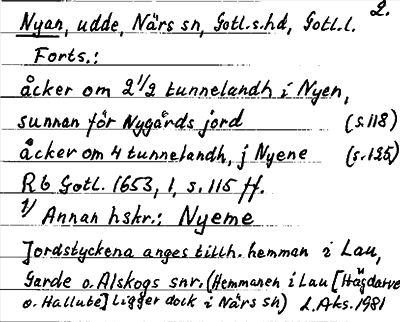 2.
Nyan, udde, Närs sn, Gotl.s.hd, Gotl.l.
Forts.:
åcker om 2 1/2 tunnelandh i Nyen,
sunnan för Nygårds jord (s.118)
åcker om 4 tunnelandh, j Nyene (s.135)
Rb Gotl. 1653, 1, s. 115 ff.
1/ Annan hskr.: Nyeme
Jordstyckena anges tillh. hemman i Lau,
Garde o. Alskogs snr. (Hemmanen i Lau [Hägdarve
o. Hallute] ligger dock i Närs sn) L. Aks. 1981